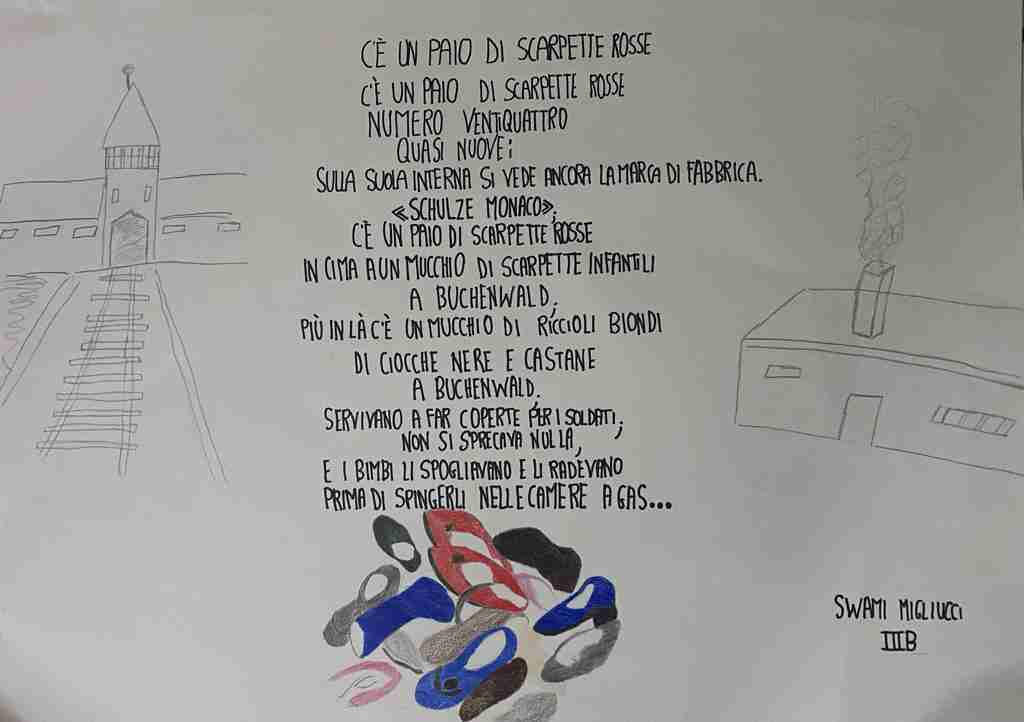 C'È UN PAIO DI SCARPETTE ROSSE
C'È UN PAIO DI SCARPETTE ROSSE
NUMERO VENTIQUATTRO
QUASI NUOVE;
SULLA SUOLA INTERNA SI VEDE ANCORA LA MARCA DI FABBRICA.
«SCHULZE MONACO»;
C'È UN PAIO DI SCARPETTE ROSSE
IN CIMA A UN MUCCHIO DI SCARPETTE INFANTILI
A BUCHENWALD;
PIÙ IN LÀ C'È UN MUCCHIO DI RICCIOLI BIONDI
DI CIOCCHE NERE E CASTANE
A BUCHENWALD.
SERVIVANO A FAR COPERTE PER I SOLDATI;
NON SI SPRECAVA NULLA,
E I BIMBI LI SPOGLIAVANO E LI RADEVANO
PRIMA DI SPINGERLI NELLE CAMERE A GAS...
SWAMI MIGLIUCCI
IIIB